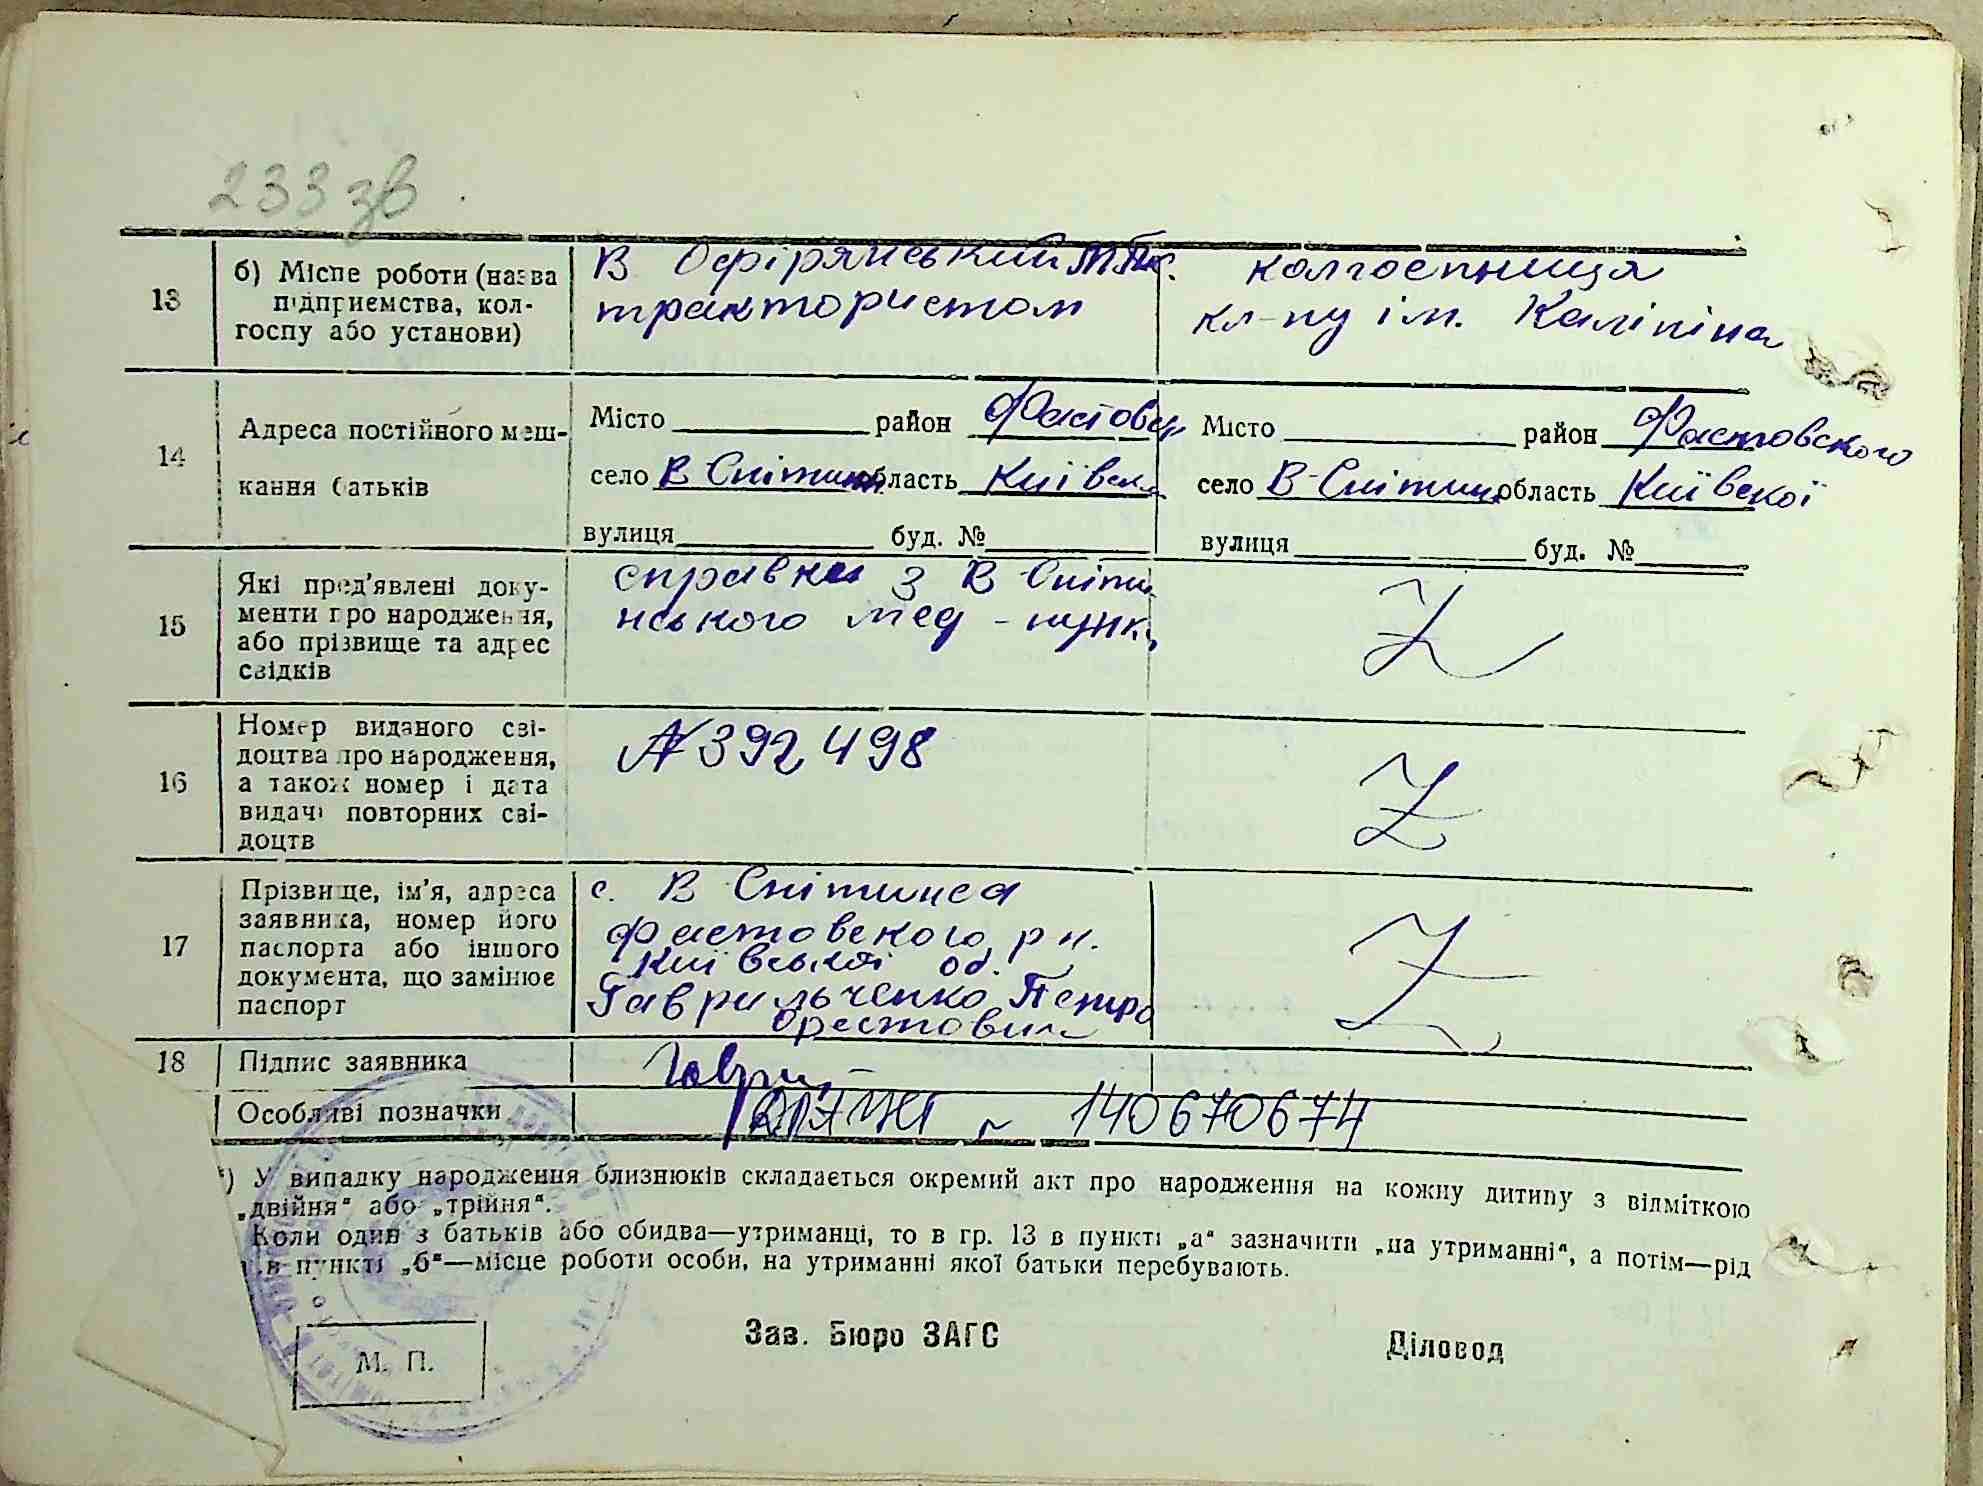 233 зв
13
б) Місце роботи (назва
підприємства, кол-
госпу або установи)
В Офірянський МТС.
трактористом
колгоспниця
кл-пу ім. Калініна
14
Адреса постійного меш-
кання батьків
Місто район Фастовск
село В Снітинк область Київск
вулиця буд. №
Місто район Фастовского
село В-Снітинк область Київскої
вулиця буд. №
15
Які пред'явлені доку-
менти про народження,
або прізвище та адрес
свідків
справка з В Сніти
нського мед-пункт
Z
16
Номер виданого сві-
доцтва про народження,
а також номер і дата
видачі повторних сві-
доцтв
№ 392498
Z
17
Прізвище, ім'я, адреса
заявника, номер його
паспорта або іншого
документа, що замінює
паспорт
с. В Снітинса
Фастовского р н.
Київської об.
Гаврильченко Петро
Орестович
Z
18
Підпис заявника
Гаври
Особливі позначки
140670674
*) У випадку народження близнюків складається окремий акт про народження на кожну дитину з відміткою
„двійня“ або „трійня“.
Коли один з батьків або обидва—утриманці, то в гр. 13 в пункті „а“ зазначити „на утриманні“, а потім—рід
і в пункті „б“—місце роботи особи, на утриманні якої батьки перебувають.
Зав. Бюро ЗАГС
Діловод
М. П.